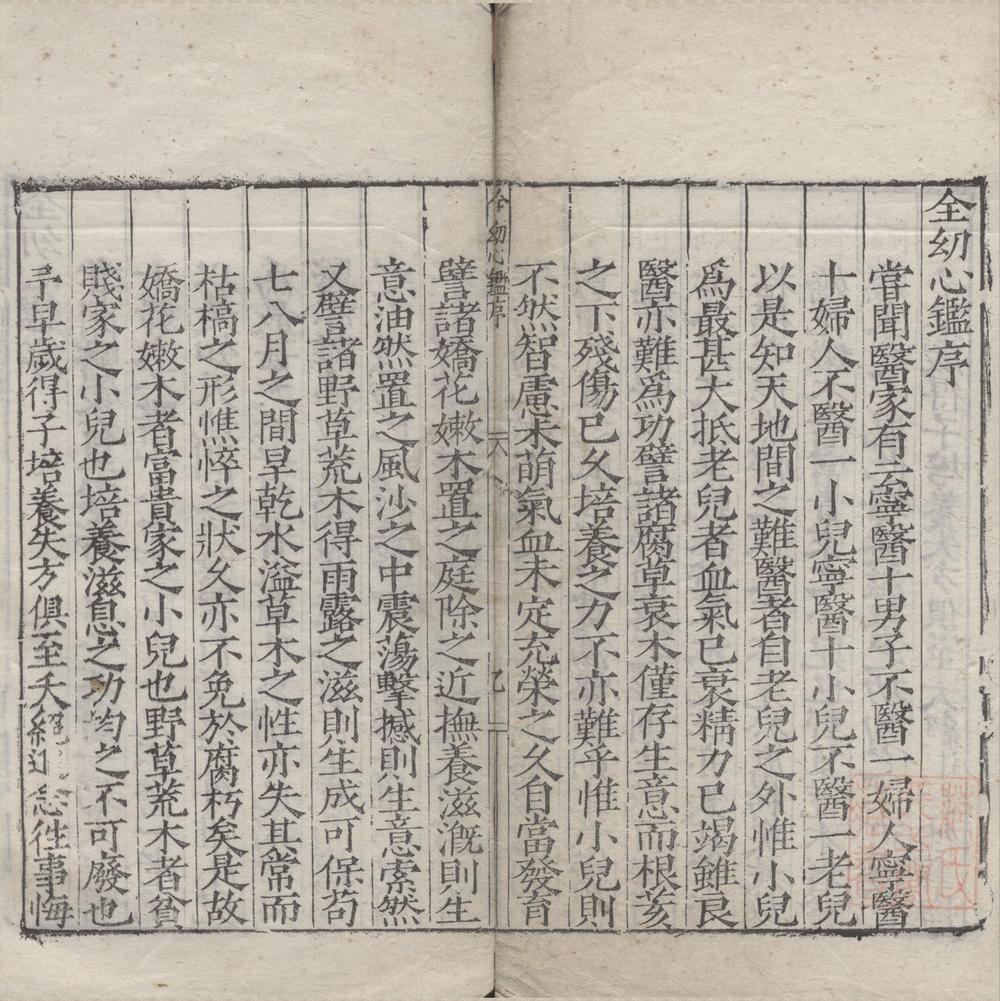 全幼心鑑序
嘗聞醫家有云寧醫十男子不醫一婦人寧醫
十婦人不醫一小兒寧醫十小兒不醫一老兒
以是知天地間之難醫者自老兒之外惟小兒
爲最甚大抵老兒者血氣已衰精力已竭雖良
醫亦難爲功譬諸腐草衰木僅存生意而根荄
之下殘傷已久培養之力不亦難乎惟小兒則
不然智慮未萌氣血未定充榮之久自當發育
全幼心鑑序
譬諸嬌花嫩木置之庭除之近撫養滋漑則生
意油然置之風沙之中震蕩擊撼則生意索然
又譬諸野草荒木得雨露之滋則生成可保苟
七八月之間旱乾水溢草木之性亦失其常而
枯槁之形憔悴之狀久亦不免於腐朽矣是故
嬌花嫩木者富貴家之小兒也野草荒木者貧
賤家之小兒也培養滋息之功均之不可廢也
予早歲得子培養失方俱至夭絕追念往事悔